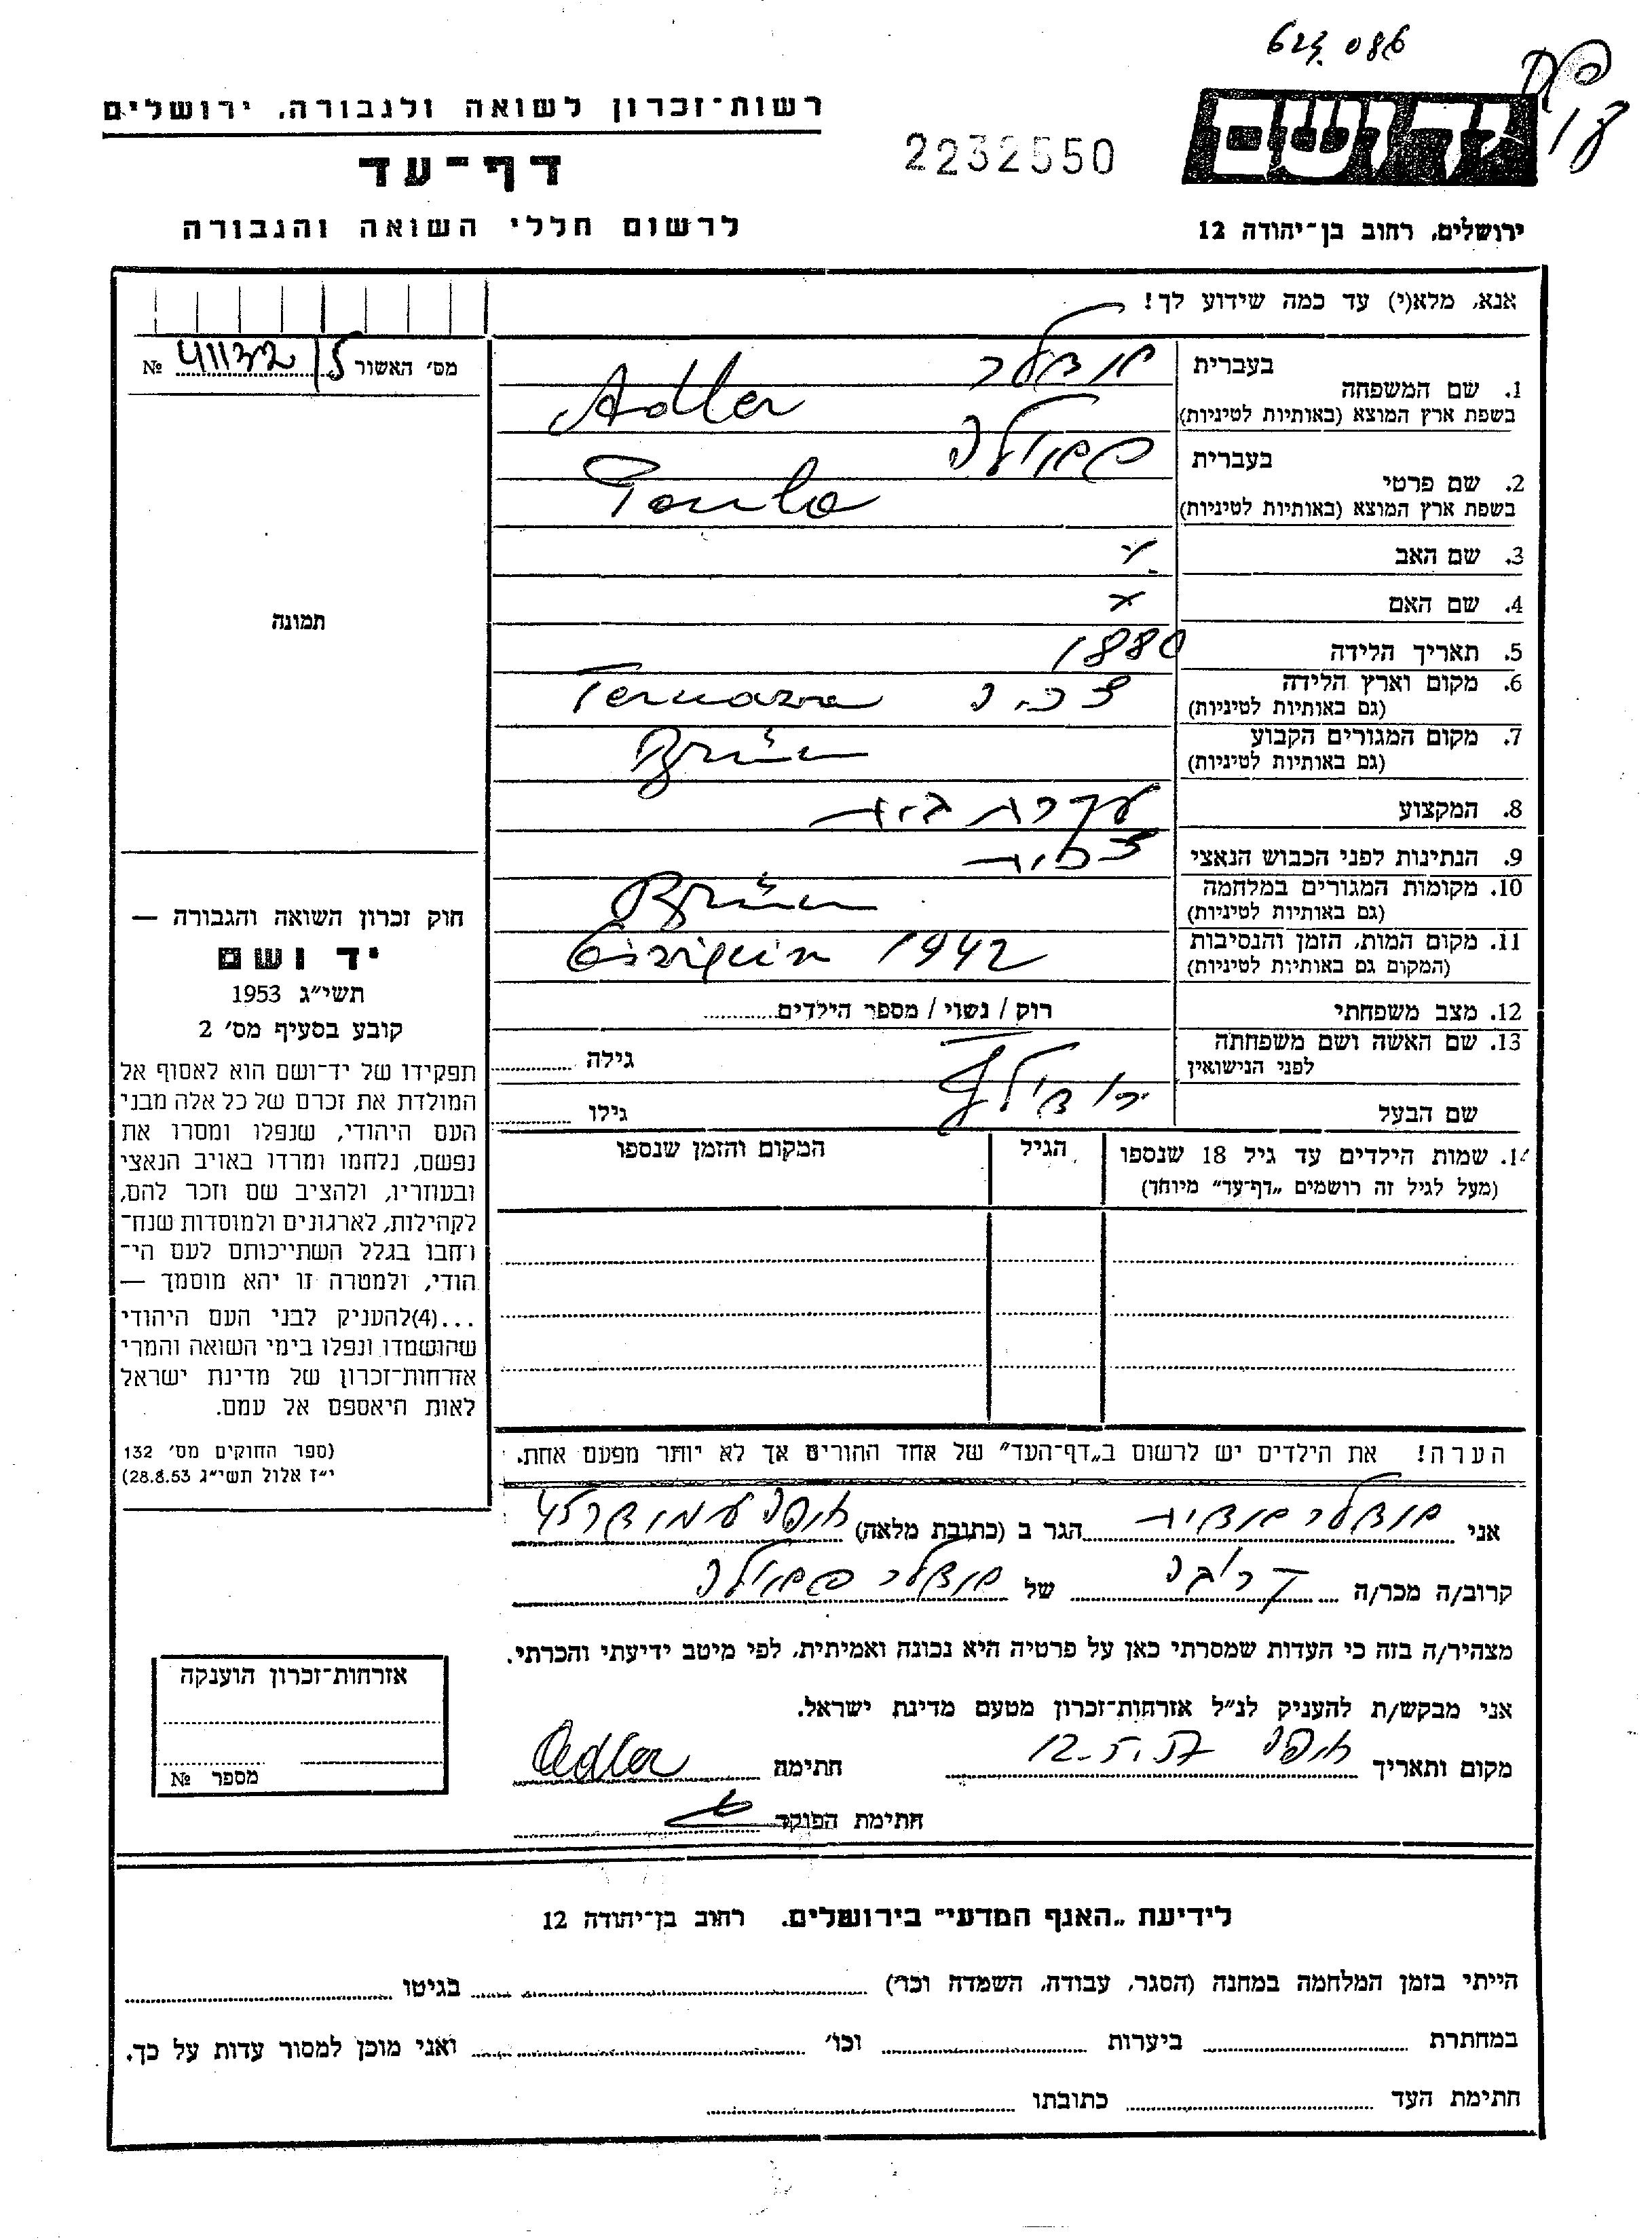 086 לצפ
רשות־זכרון לשואה ולגבורה, ירושלים
דף־עד
לרשום חללי השואה והגבורה
2232550
יד ושם
ירושלים, רחוב בן־יהודה 12
אנא, מלא(י) עד כמה שידוע לך!
מס׳ האשור 41132 №
1. שם המשפחה
בעברית אדלר
בשפת ארץ המוצא (באותיות לטיניות) Adler
2. שם פרטי
בעברית פאולה
בשפת ארץ המוצא (באותיות לטיניות) Paula
3. שם האב x
4. שם האם x
5. תאריך הלידה 1880
6. מקום וארץ הלידה
(גם באותיות לטיניות) צ׳כ׳
7. מקום המגורים הקבוע
(גם באותיות לטיניות) Brünn
8. המקצוע עקרת בית
9. הנתינות לפני הכבוש הנאצי צ׳כית
10. מקומות המגורים במלחמה
(גם באותיות לטיניות) Brünn
11. מקום המות, הזמן והנסיבות
(המקום גם באותיות לטיניות) 1942
12. מצב משפחתי רוק / נשוי / מספר הילדים
13. שם האשה ושם משפחתה
לפני הנישואין גילה
שם הבעל רודולף גילו
14. שמות הילדים עד גיל 18 שנספו
(מעל לגיל זה רושמים „דף־עד” מיוחד)
הגיל
המקום והזמן שנספו
תמונה
חוק זכרון השואה והגבורה —
יד ושם
תשי״ג 1953
קובע בסעיף מס׳ 2
תפקידו של יד־ושם הוא לאסוף אל
המולדת את זכרם של כל אלה מבני
העם היהודי, שנפלו ומסרו את
נפשם, נלחמו ומרדו באויב הנאצי
ובעוזריו, ולהציב שם וזכר להם,
לקהילות, לארגונים ולמוסדות שנח־
רחבו בגלל השתייכותם לעם הי־
הודי, ולמטרה זו יהא מוסמך —
...(4)להעניק לבני העם היהודי
שהושמדו ונפלו בימי השואה והמרי
אזרחות־זכרון של מדינת ישראל
לאות היאספם אל עמם.
(ספר החוקים מס׳ 132
י״ז אלול תשי״ג 28.8.53)
הערה! את הילדים יש לרשום ב„דף־העד” של אחד ההורים אך לא יותר מפעם אחת.
אני אדלר אודית הגר ב (כתובת מלאה) חיפה
קרוב/ה מכר/ה קרובה של אדלר פאולה
מצהיר/ה בזה כי העדות שמסרתי כאן על פרטיה היא נכונה ואמיתית, לפי מיטב ידיעתי והכרתי.
אני מבקש/ת להעניק לנ״ל אזרחות־זכרון מטעם מדינת ישראל.
מקום ותאריך חיפה 12.5.57 חתימה Adler
חתימת הפוקד
אזרחות־זכרון הוענקה
מספר №
לידיעת „האנף המדעי” בירושלים. רחוב בן־יהודה 12
הייתי בזמן המלחמה במחנה (הסגר, עבודה, השמדה וכו׳) בגיטו
במחתרת ביערות וכו׳ ואני מוכן למסור עדות על כך.
חתימת העד כתובתו